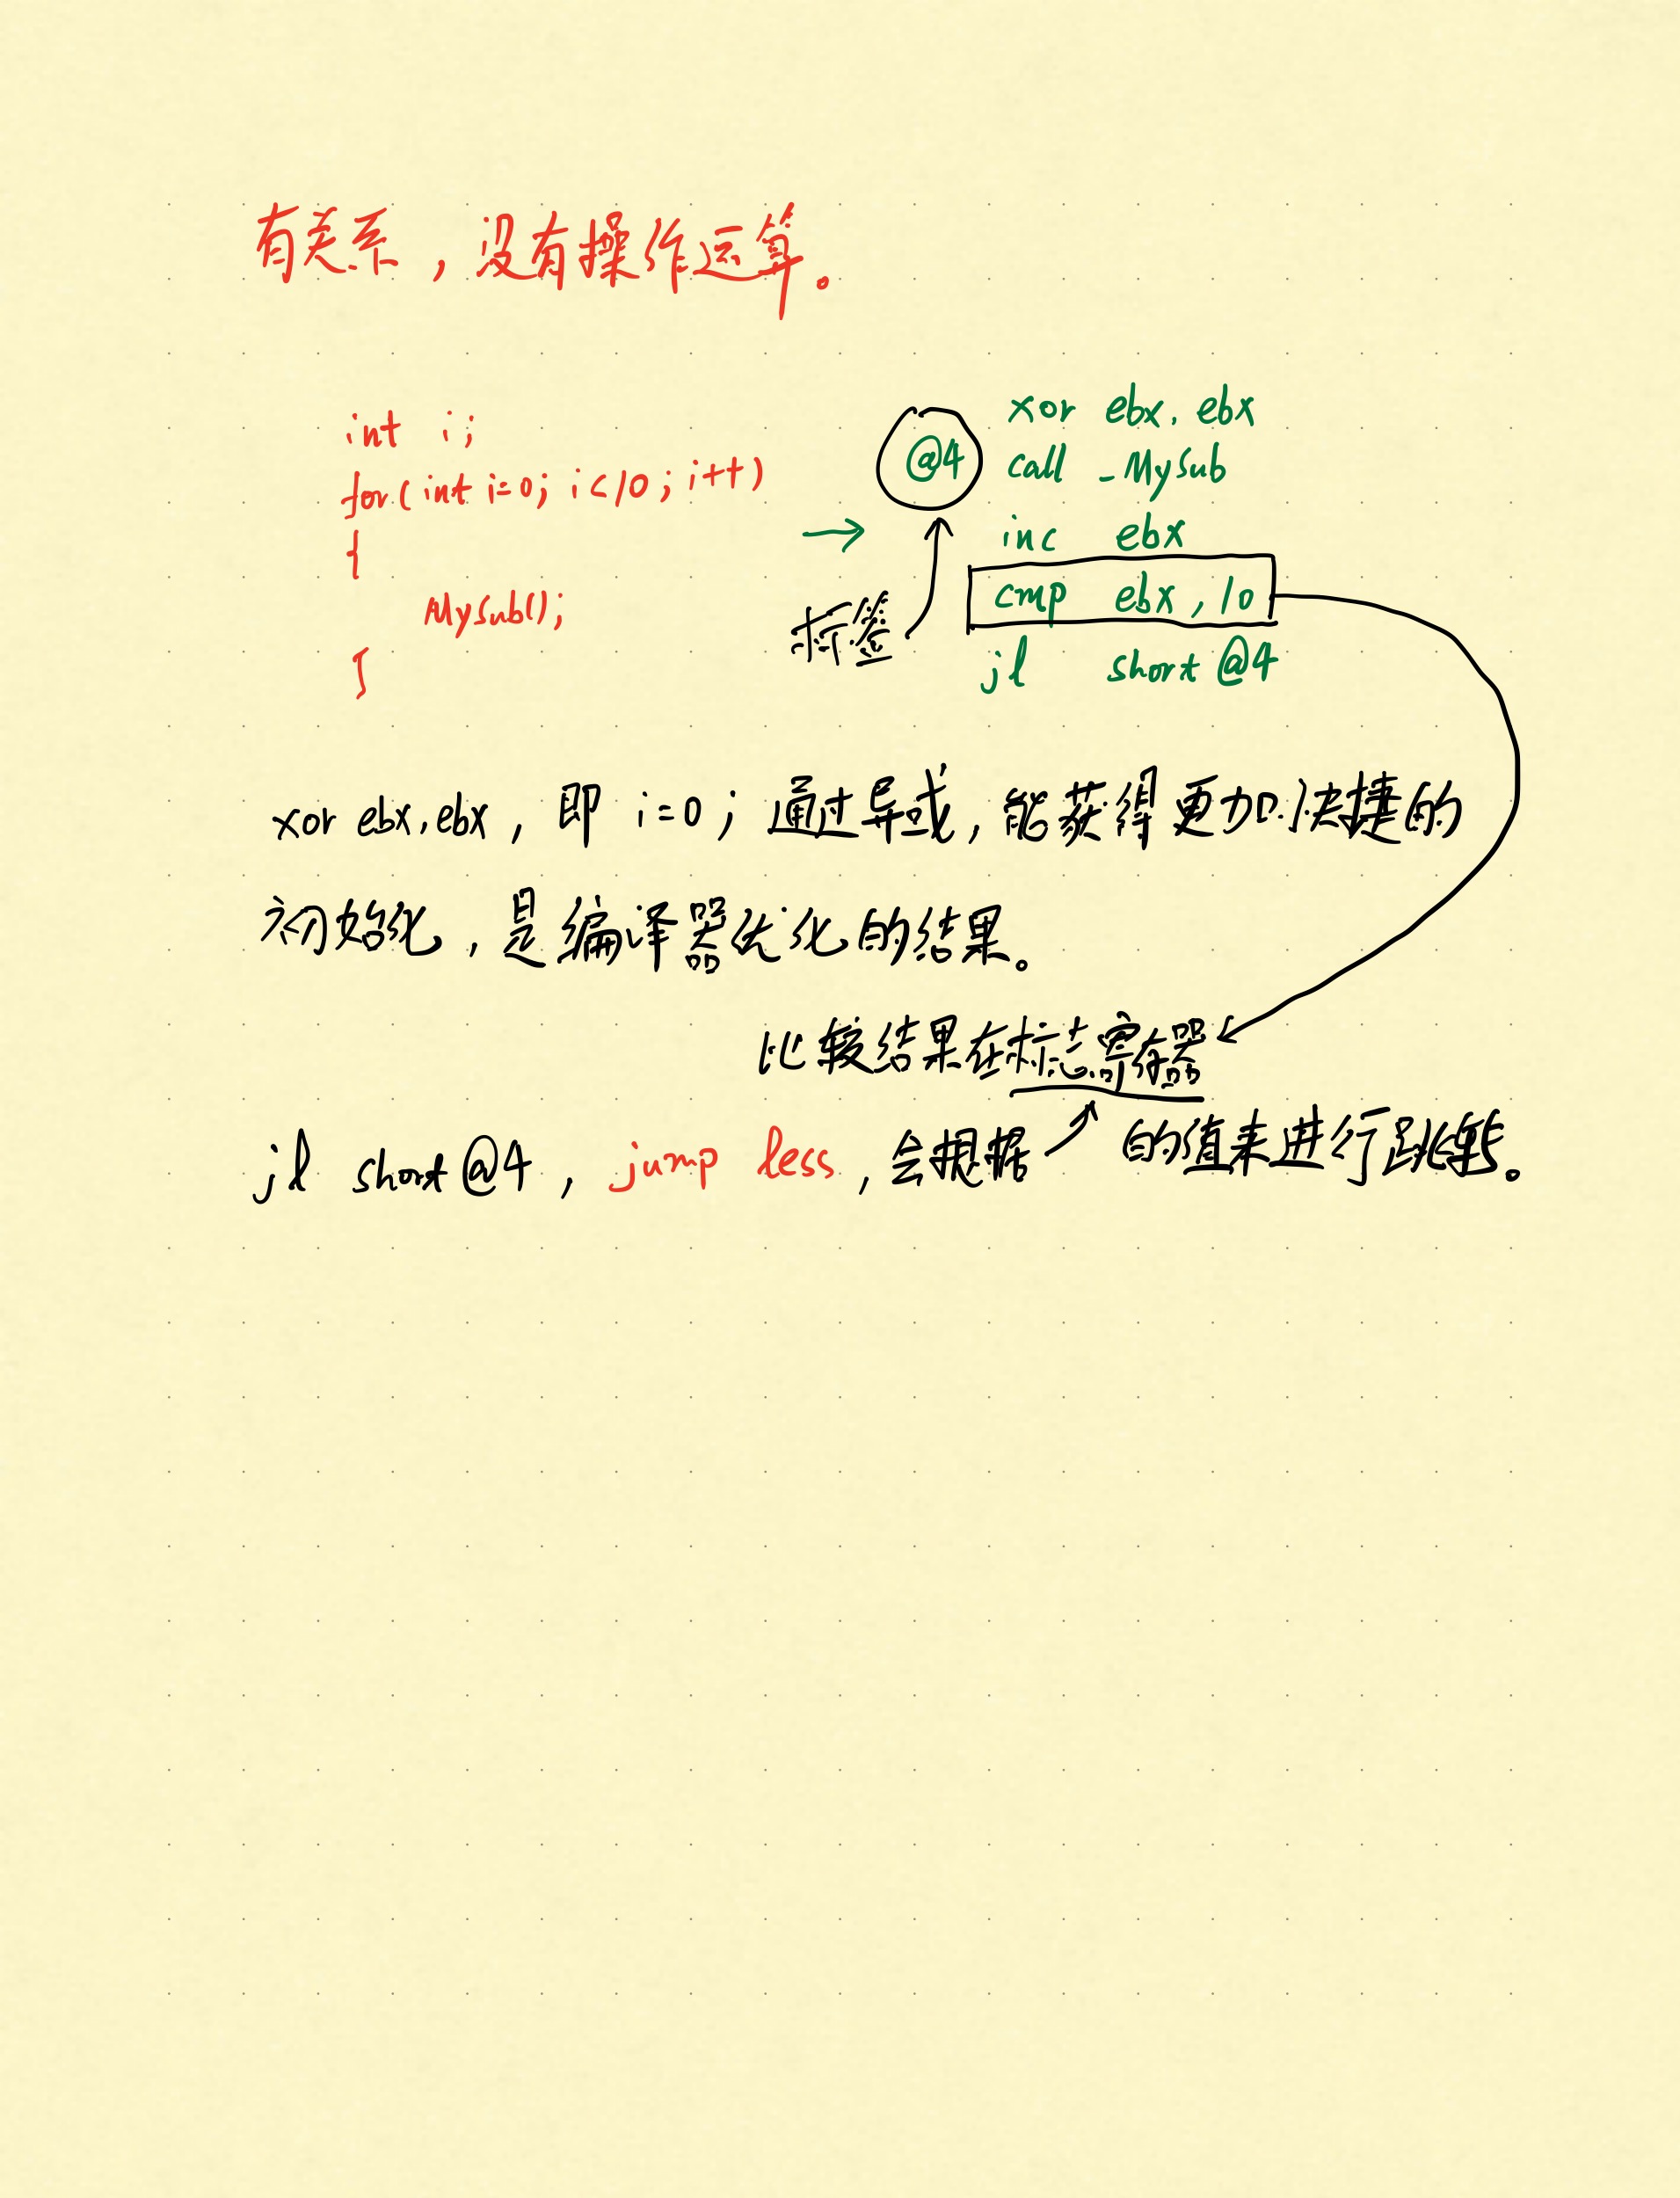 有关系，没有操作运算。
int i;
for(int i=0; i<10; i++)
{
MySub();
}
→
xor ebx, ebx
@4 call _MySub
inc ebx
cmp ebx, 10
jl short @4
标签
xor ebx, ebx, 即 i=0; 通过异或, 能获得更加快捷的
初始化, 是编译器优化的结果。
比较结果在标志寄存器
jl short @4, jump less, 会根据 的值来进行跳转。